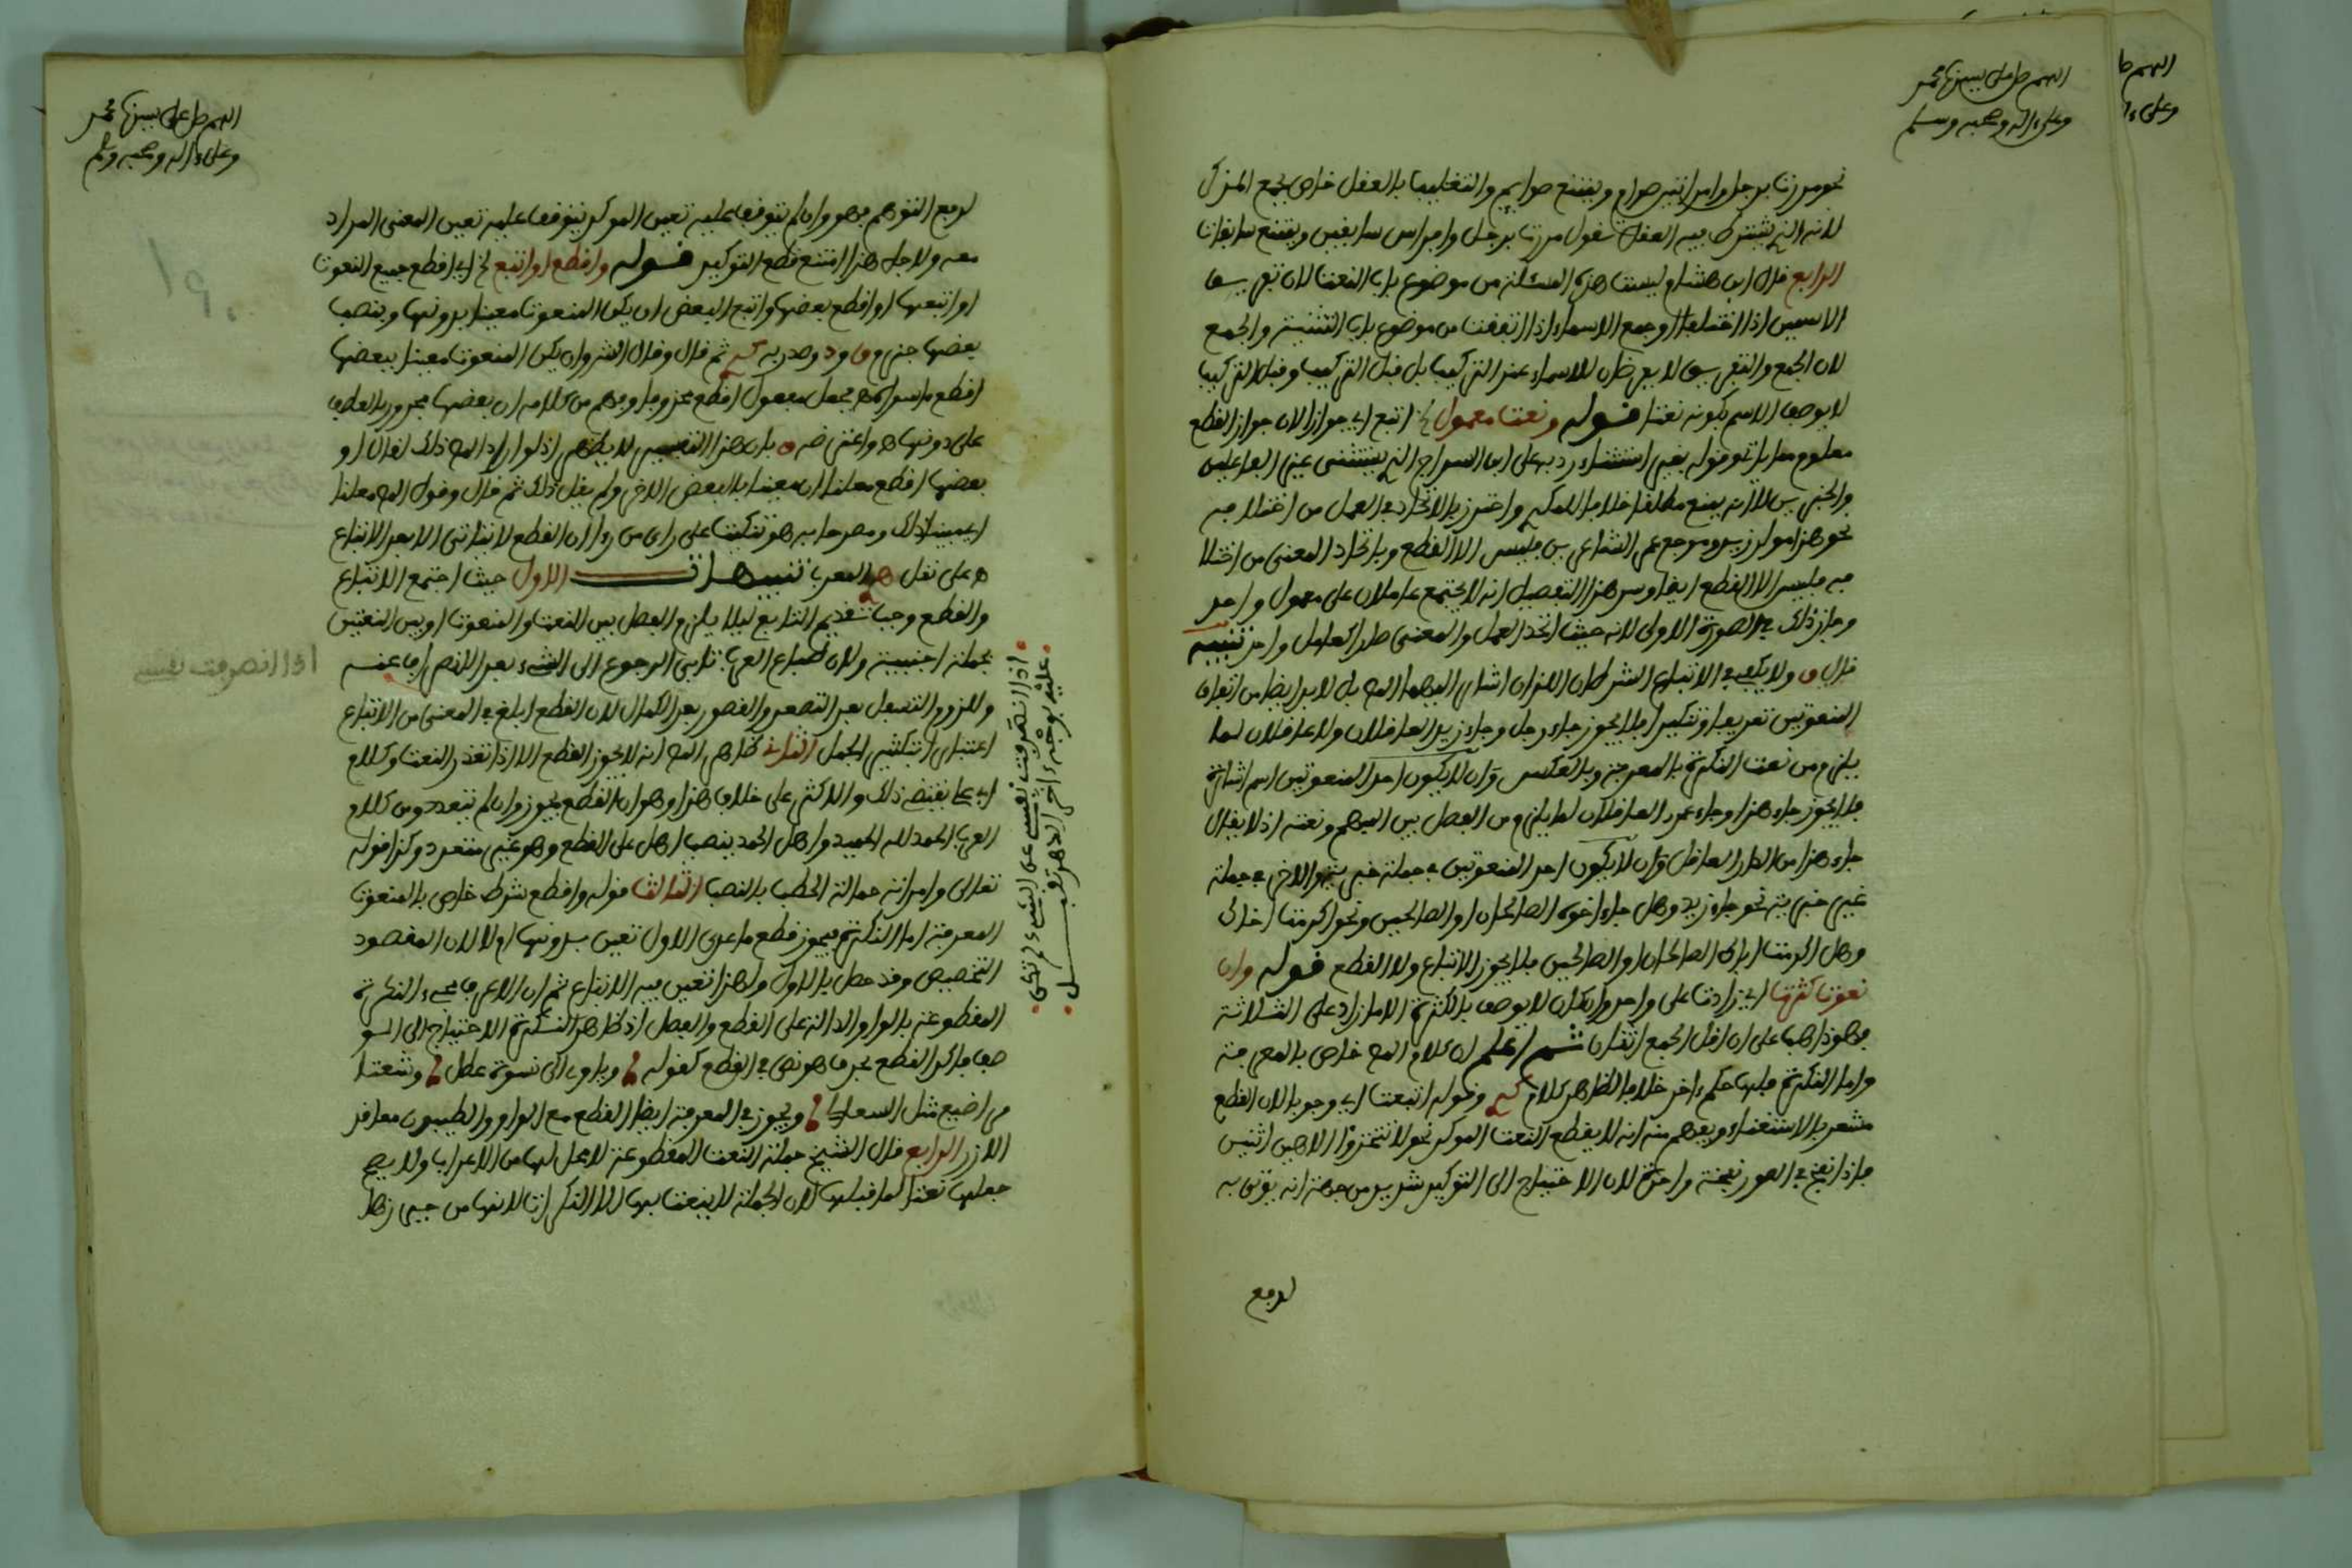 اللهم صل على سيدنا محمد
وعلى ءاله وصحبه وسلم
نحو مررت برجل وامراتين صوام ويمتنع صوايم والتغليب بالعقل خاص بجمع المذكر
لانه الذي يشترط فيه العقل تقول مررت برجل وافراس سابقين ويمتنع سابقات
الرابع قال ابن هشام وليست هذه المسئلة من موضوع باب النعت لان تفريق
الاسمين اذا اختلفا وجمع الاسماء اذا اتفقت من موضوع باب التثنية والجمع
لان الجمع والتفريق لا يعرضان للاسماء عند التركيب بل قبل التركيب وقبل التركيب
لا يوصف الاسم بكونه نعتا قوله ونعت معمولي اتبع اي جوازا لان جواز القطع
معلوم مما ياتي وقوله بغير استثنا رد به على ابن السراج الذي يستثني غير الفاعلين
والخبرين لانه يمنع مطلقا خلافا للمكي واحترز بالاتحاد في العمل من اختلافه
نحو هذا مولم زيد وموجع عمر الشاعرين فليس الا القطع وباتحاد المعنى من اختلا
فه فليس الا القطع ايضا وسر هذا التفصيل انه لا يجتمع عاملان على معمول واحد
وجاز ذلك في الصورة الاولى لانه حيث اتحد العمل والمعنى صار العامل واحد تنبيه
قال ق ولا يكفي في الاتباع الشرطان اللذان اشار اليهما المص بل لابد ايضا من اتفاق
المنعوتين تعريفا وتنكيرا فلا يجوز جاء رجل وجاء زيد العاقلان ولا عاقلان لما
يلزم من نعت النكرة بالمعرفة وبالعكس وان لا يكون احد المنعوتين اسم اشارة
فلا يجوز جاء هذا وجاء عمر العاقلان لما يلزم من الفصل بين المبهم ونعته اذ لا يقال
جاء هذا من الدار العاقل وان لا يكون احد المنعوتين في جملة خبرية والاخر في جملة
غير خبرية نحو جاء زيد وهل جاء اخوه الصالحان او الصالحين ونحو اكرمت اخاك
وهل اكرمت اباك الصالحان او الصالحين فلا يجوز الاتباع ولا القطع قوله وان
نعوت كثرت اي زادت على واحد وان كان لا يوصف بالكثرة الا ما زاد على الثلاثة
فهو ذاهب على ان اقل الجمع اثنان ثم اعلم ان كلام المص خاص بالمعرفة
واما النكرة فلها حكم ءاخر خلافا لظاهر كلام وقوله اتبعت اي وجوبا لان القطع
مشعر بالاستغناء ويفهم منه انه لا يقطع النعت الموكد نحو لا تتخذوا الاهين اثنين
فاذا نفخ في الصور نفخة واحدة لان الاحتياج الى التوكيد شديد من جهة انه يوتى به
لدفع
اللهم صل على سيدنا محمد
وعلى ءاله وصحبه وسلم
لدفع التوهم فهو وان لم يتوقف عليه تعين الموكد يتوقف عليه تعين المعنى المراد
معه ولاجل هذا امتنع قطع التوكيد قوله واقطع او اتبع اي اقطع جميع النعوت
او اتبعها او اقطع بعضها واتبع البعض ان يكن المنعوت معينا بدونها وبنصب
بعضها جزم وصدر به ثم قال وقال الش وان يكن المنعوت معينا ببعضها
اقطع ما سواه فجعل مفعول اقطع محذوفا وفهم من كلامه ان بعضها مجرور بالعطف
على دونها واعترضه ق بان هذا التفسير لا يظهر اذ لو اراد المص ذلك لقال او
بعضها اقطع معلنا ان معينا بالبعض الاخر ولم يقل ذلك ثم قال وقول المص معلنا
اي مبينا لذلك ومصرحا به هو تنكيت على راي من راى ان القطع لا يتاتى الا بعد الاتباع
على نقل المعرب تنبيهات الاول حيث اجتمع الاتباع
والقطع وجب تقديم التابع ليلا يلزم الفصل بين النعت والمنعوت او بين النعتين
بجملة اجنبية ولان طباع العرب تابى الرجوع الى الشيء بعد الانصراف عنه
وللزوم التسفل بعد التصعد والقصور بعد الكمال لان القطع ابلغ في المعنى من الاتباع
اعتبارا بتكثير الجمل الثاني ظاهر المص انه لا يجوز القطع الا اذا تعدد النعت وكلام
يقتضي ذلك والاكثر على خلاف هذا وهو ان القطع يجوز وان لم يتعدد ومن كلام
العرب الحمد لله الحميد واهل الحمد بنصب اهل على القطع وهو غير متعدد وكذا قوله
تعالى وامراته حمالة الحطب بالنصب الثالث قوله واقطع شرط خاص بالمنعوت
المعرفة اما النكرة فيجوز قطع ما عدى الاول تعين بدونها ام لا لان المقصود
التخصيص وقد حصل بالاول ولهذا تعين فيه الاتباع ثم ان الاعرف مجيء النكرة
المقطوعة بالواو الدالة على القطع والفصل اذ ظاهر النكرة الاحتياج الى الو
صف فاكد القطع بحرف هو نص في القطع كقوله وياوي الى نسوة عطل وشعثا
مراضيع مثل السعالي ويجوز في المعرفة ايضا القطع مع الواو والطيبون معاقد
الازر الرابع قال الشيخ جملة النعت المقطوعة لا محل لها من الاعراب ولا يصح
جعلها نعتا لما قبلها لان الجملة لا ينعت بها الا النكرات لانها من جيس
اذا انصرفت نفسي عن الشيء لم تكد
عليه بوجه ءاخر الدهر تقبل
اذا انصرفت نفسي